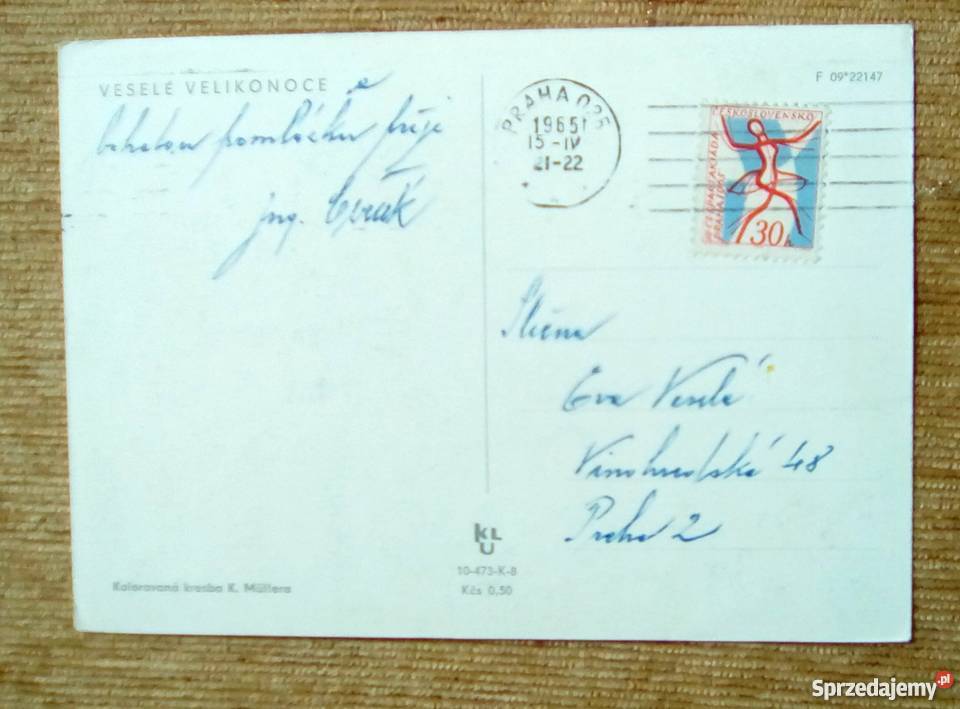 VESELÉ VELIKONOCE a
bohatou pomlázku přeje
ing.
F 09*22147
PRAHA 025
1965
15-IV
21-22
ČESKOSLOVENSKO
30h
Slečna
Eva Veselá
Vinohradská 48
Praha 2
KLU
10-473-K-8
Kčs 0,50
Kolorovaná kresba K. Müllera
Sprzedajemy.pl